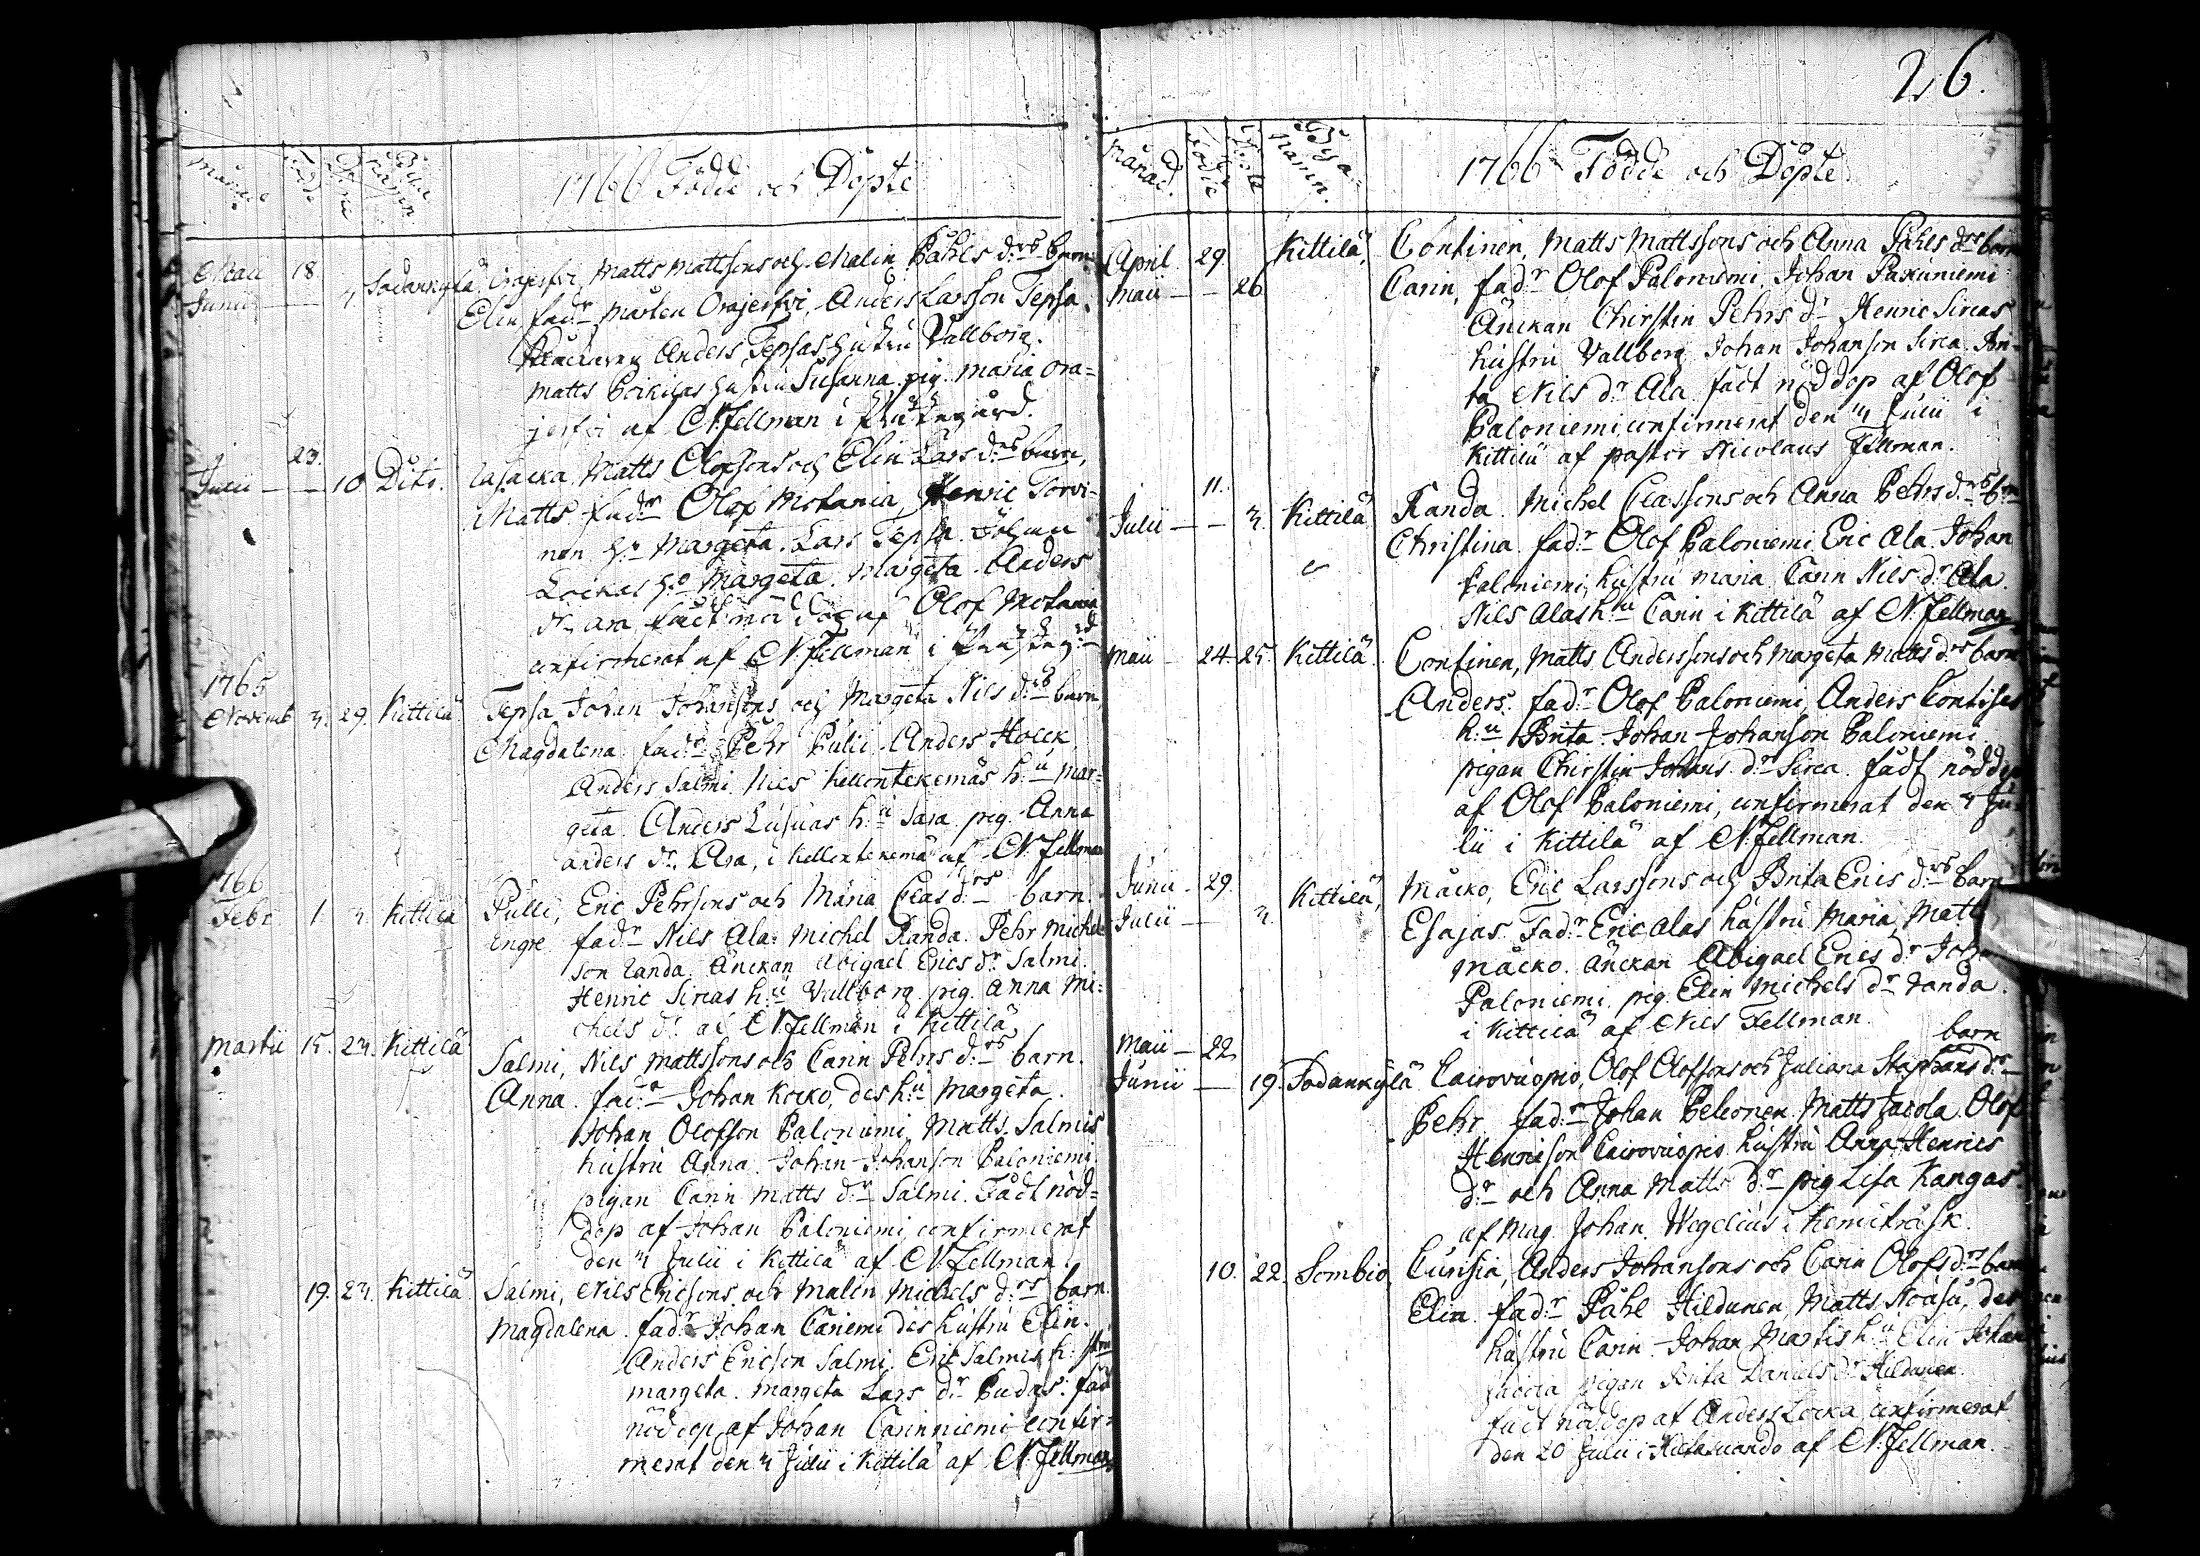 26.
Månad
Födde
Döpte
Byanamn
1766 Födde och Döpte
Maii 18. Matts Mattsons och Malin Påhls d:rs barn
Junii — 4. Sodankylä, Orajerfvi,
Elin, fad:r Mårten Orajerfvi, Anders Larsson Tepsa,
Anders Tepsas hustru Vallborg.
Matts hustru Susanna. pig. Maria Ora=
jerfvi af N. Fellman i Prästegård.
23.
Julii — — 10 Dito. Matts Olofsons och Elin Lars d:rs barn,
Matts fad:r Olof Henric Torvi-
nen h:u Margeta. Lars Tepsa. Johan
h:u Margeta. Margeta Anders
d:r Ara fådt nöd dop af Olof
confirmerat af N. Fellman i
1765
Novemb. 4. 29. Kittilä Tepsa Johan Johansons och Margeta Nils d:rs barn
Magdalena fad:r Pehr Pulii. Anders Hock
Anders Salmi. Nils Kellontekemäs h:u Mar=
geta. Anders Lusuas h:u Sara. pig. Anna
Anders d:r Ara, i Kellontekemä af N. Fellman
1766
Febr. 1. 4. Kittilä Pulli, Eric Pehrsons och Maria Clas d:rs barn.
Engre fad:r Nils Ala. Michel Randa. Pehr Michel
son Randa. Änckan Abigael Erics d:r Salmi.
Henric Sircas h:u Vallborg. pig. Anna Mi=
chels d:r af N. Fellman i Kittilä
Martii 15. 24. Kittilä Salmi, Nils Mattssons och Carin Pehrs d:rs barn.
Anna. fad:r Johan Kocko, des h:u Margeta.
Johan Olofson Paloniemi, Matts Salmis
hustru Anna. Johan Johanson Paloniemi.
pigan Carin Matts d:r Salmi. Fådt nöd=
dop af Johan Paloniemi, confirmerat
den 4 Julii i Kittilä af N. Fellman.
19. 24. Kittilä Salmi, Nils Ericsons och Malin Michels d:rs barn.
Magdalena. fad:r Johan Caniemi des hustru Elin.
Anders Ericson Salmi. Eric Salmis h:stru
Margeta. Margeta Lars d:r Pudas. fådt
nöd dop af Johan Carinniemi confir=
merat den 4 Julii i Kittilä af N. Fellman
Månad.
Födde
Döpte
Bya-
namn.
1766 Födde och Döpte
April 29. Kittilä, Continen, Matts Mattssons och Anna Påhls d:rs barn
Maii — — 26 Carin, fad:r Olof Paloniemi, Johan Pakuniemi
Änckan Chirstin Pehrs d:r Henric Sircas
hustru Vallborg Johan Johanson Sirca. Bri-
ta Nils d:r Ala fådt nöddop af Olof
Paloniemi, confirmerat den 4 Julii i
Kittilä af pastor Nicolaus Fellman.
11.
Julii — — 4. Kittilä Randa. Michel Classons och Anna Pehrs d:rs b:n
Christina. fad:r Olof Paloniemi Eric Ala. Johan
Paloniemi, hustru Maria, Carin Nils d:r Ala.
Nils Alas h:u Carin i Kittilä af N. Fellman
Maii — 24. 25. Kittilä. Continen, Matts Anderssons och Margeta Matts d:rs barn
Anders. fad:r Olof Paloniemi, Anders Contises
h:u Brita. Johan Johanson Paloniemi.
pigan Chirstin Johans d:r Sirca. fådt nöddop
af Olof Paloniemi, confirmerat den 4 Ju-
lii i Kittilä af N. Fellman.
Junii — 29. Kittilä, Måcko, Eric Larssons och Brita Erics d:rs barn
Julii — 4. Esajas. Fad:r Eric Alas hustru Maria, Matts
Måcko. Änckan Abigael Erics d:r Joha
Paloniemi. pig. Elin Michels d:r Randa.
i Kittilä af Nils Fellman.
Maii — 22 barn
Junii — 19. Sodankylä Cairovuopio, Olof Olofsons och Juliana Staphans d:rs
Pehr. fad:r Johan Pelconen. Matts Jacola. Olof
Henricson Cairovuopio hustru Anna Henrics
d:r och Anna Matts d:r pig Lisa Kangas.
af Mag. Johan Wegelius i Kemiträsk.
10. 22. Sombio, Cursia, Anders Johansons och Carin Olofs d:rs barn
Elin. fad:r Påhl Hildunen. Matts des
hustru Carin. Johan Martis h:u Elin Johan
pigan Brita Daniels d:r Hildunen.
fådt nöddop af Anders Locka confirmerat
den 20 Julii i af N. Fellman.